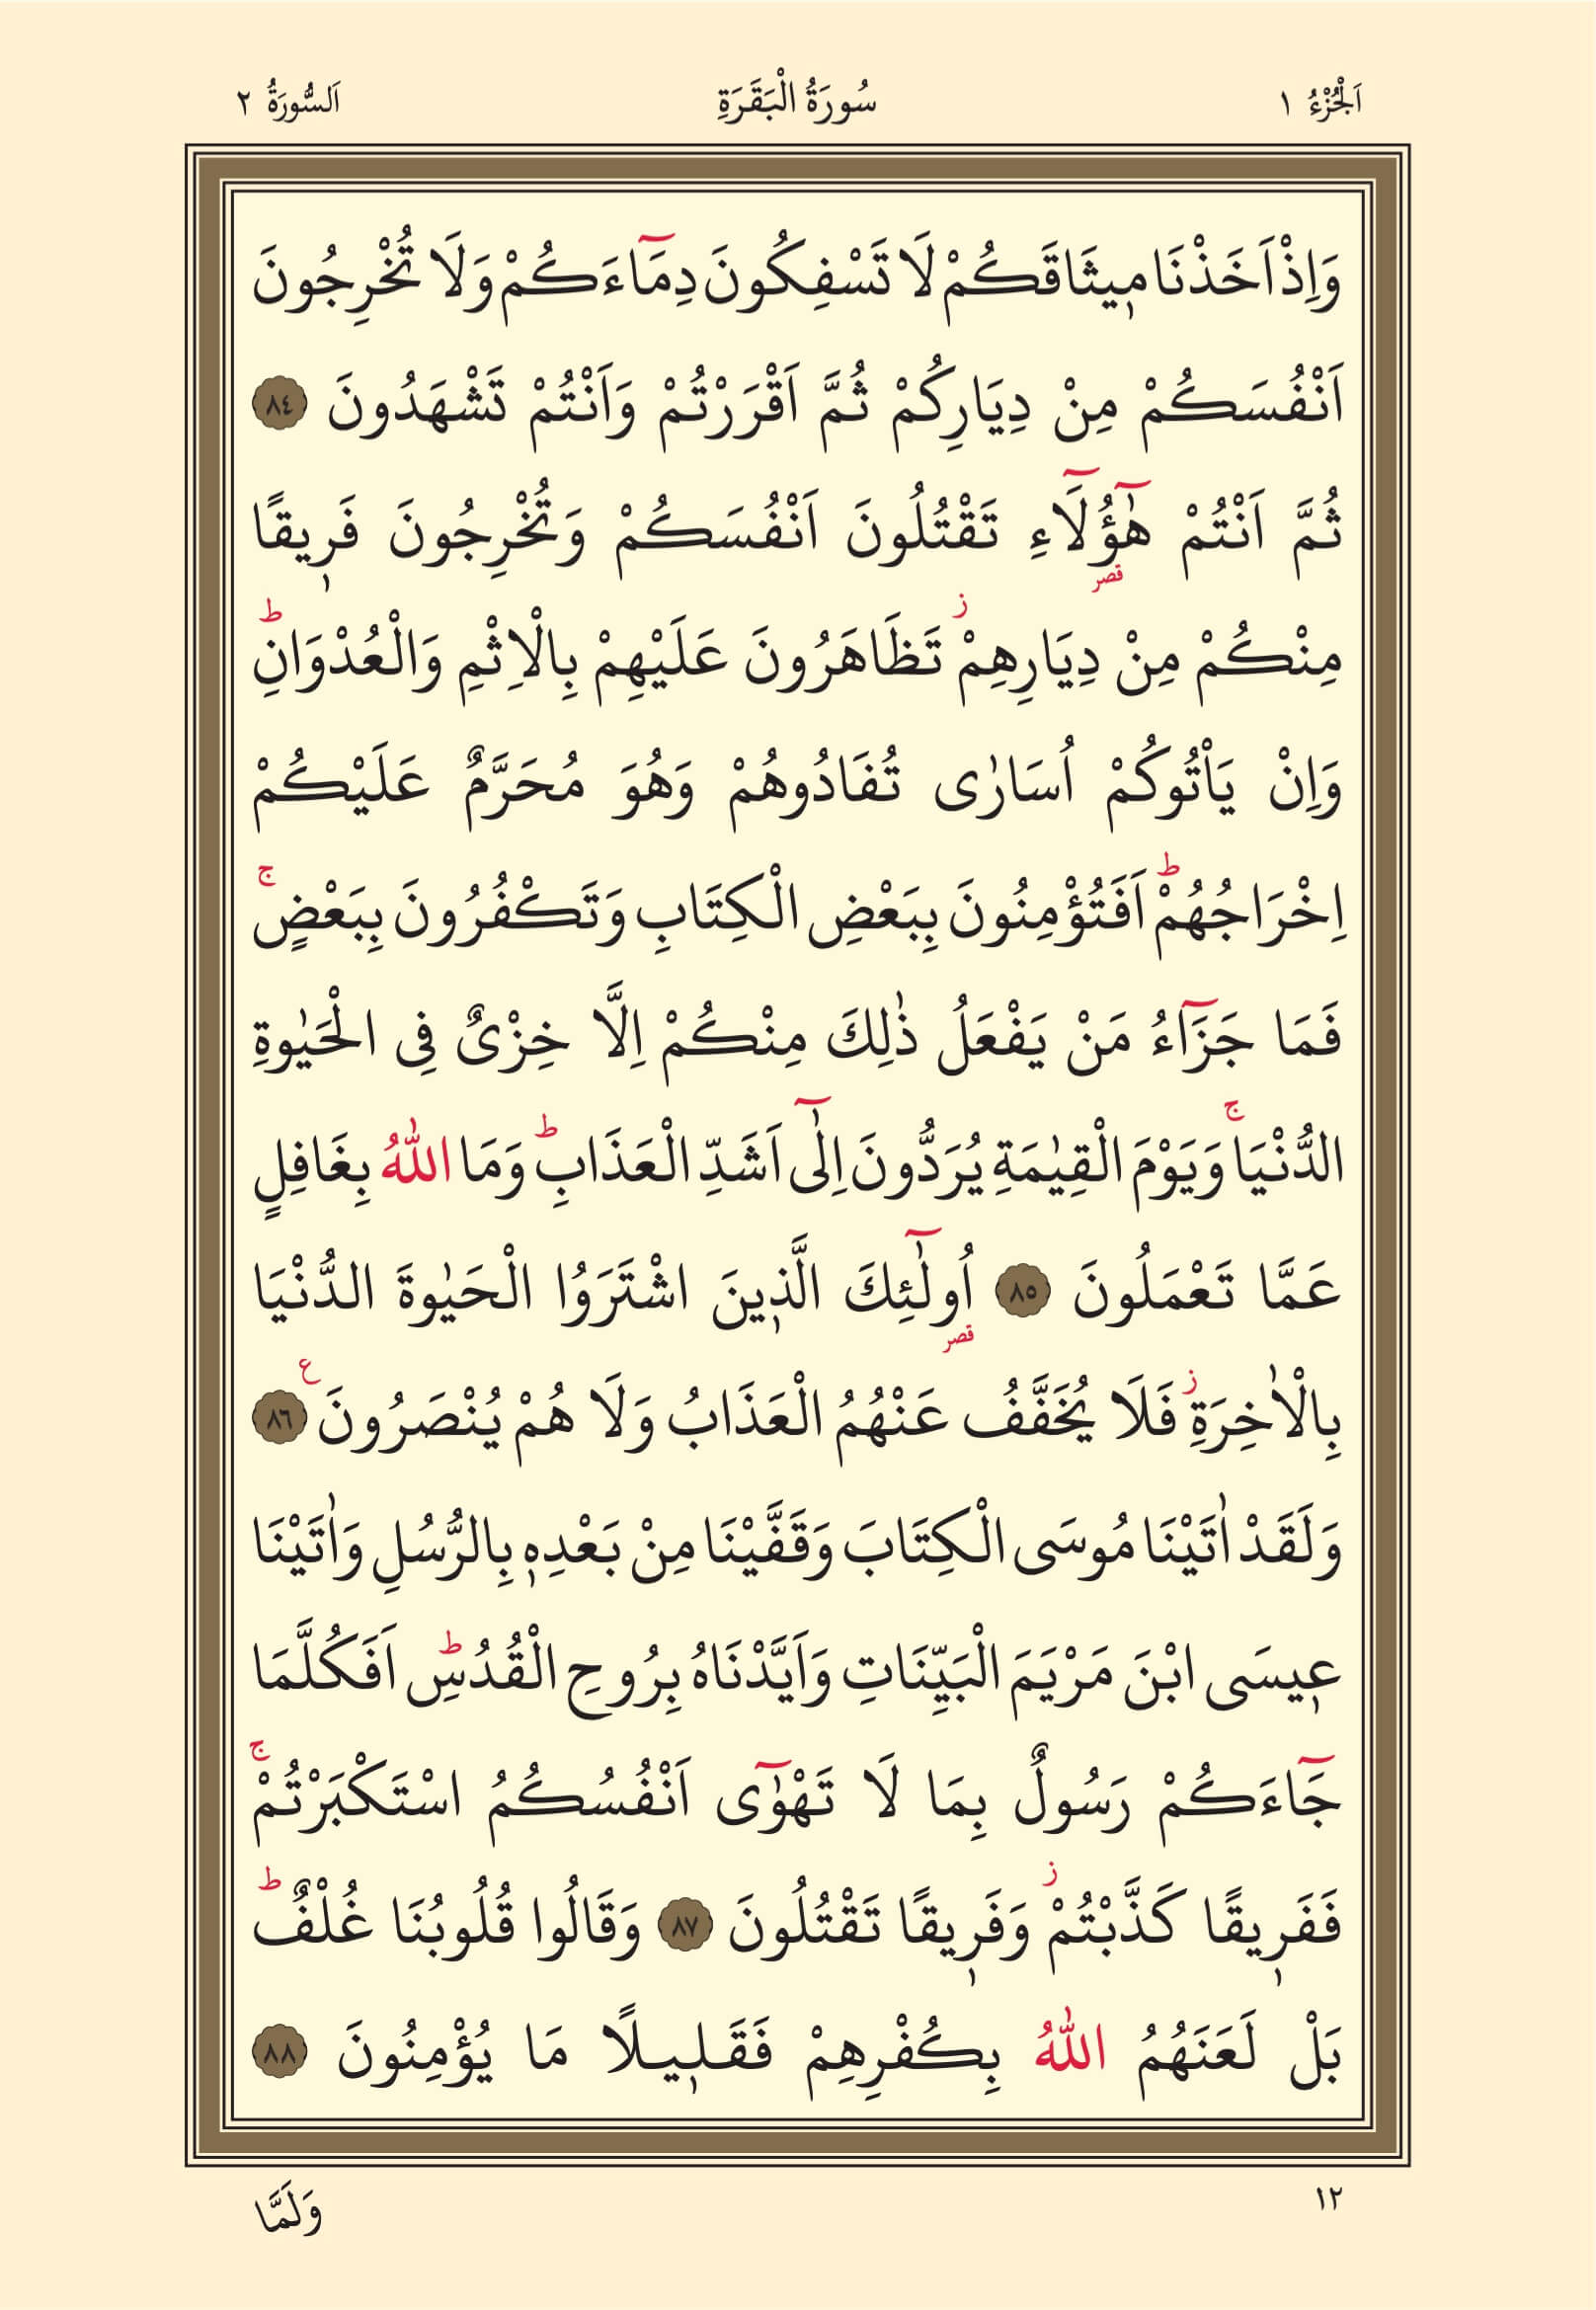 اَلْجُزْءُ ١
سُورَةُ الْبَقَرَةِ
اَلسُّورَةُ ٢
وَاِذْ اَخَذْنَا مٖيثَاقَكُمْ لَا تَسْفِكُونَ دِمَٓاءَكُمْ وَلَا تُخْرِجُونَ
اَنْفُسَكُمْ مِنْ دِيَارِكُمْ ثُمَّ اَقْرَرْتُمْ وَاَنْتُمْ تَشْهَدُونَ ٨٤
ثُمَّ اَنْتُمْ هٰٓؤُ۬لَٓاءِ تَقْتُلُونَ اَنْفُسَكُمْ وَتُخْرِجُونَ فَرٖيقًا
قصر
مِنْكُمْ مِنْ دِيَارِهِمْؗ تَظَاهَرُونَ عَلَيْهِمْ بِالْاِثْمِ وَالْعُدْوَانِؕ
وَاِنْ يَاْتُوكُمْ اُسَارٰى تُفَادُوهُمْ وَهُوَ مُحَرَّمٌ عَلَيْكُمْ
اِخْرَاجُهُمْؕ اَفَتُؤْمِنُونَ بِبَعْضِ الْكِتَابِ وَتَكْفُرُونَ بِبَعْضٍۚ
فَمَا جَزَٓاءُ مَنْ يَفْعَلُ ذٰلِكَ مِنْكُمْ اِلَّا خِزْىٌ فِى الْحَيٰوةِ
الدُّنْيَاۚ وَيَوْمَ الْقِيٰمَةِ يُرَدُّونَ اِلٰٓى اَشَدِّ الْعَذَابِؕ وَمَا اللّٰهُ بِغَافِلٍ
عَمَّا تَعْمَلُونَ ٨٥ اُولٰٓئِكَ الَّذٖينَ اشْتَرَوُا الْحَيٰوةَ الدُّنْيَا
قصر
بِالْاٰخِرَةِؗ فَلَا يُخَفَّفُ عَنْهُمُ الْعَذَابُ وَلَا هُمْ يُنْصَرُونَ ع ٨٦
وَلَقَدْ اٰتَيْنَا مُوسَى الْكِتَابَ وَقَفَّيْنَا مِنْ بَعْدِهٖ بِالرُّسُلِ وَاٰتَيْنَا
عٖيسَى ابْنَ مَرْيَمَ الْبَيِّنَاتِ وَاَيَّدْنَاهُ بِرُوحِ الْقُدُسِؕ اَفَكُلَّمَا
جَٓاءَكُمْ رَسُولٌ بِمَا لَا تَهْوٰٓى اَنْفُسُكُمُ اسْتَكْبَرْتُمْۚ
فَفَرٖيقًا كَذَّبْتُمْؗ وَفَرٖيقًا تَقْتُلُونَ ٨٧ وَقَالُوا قُلُوبُنَا غُلْفٌؕ
بَلْ لَعَنَهُمُ اللّٰهُ بِكُفْرِهِمْ فَقَلٖيلًا مَا يُؤْمِنُونَ ٨٨
١٢
وَلَمَّا